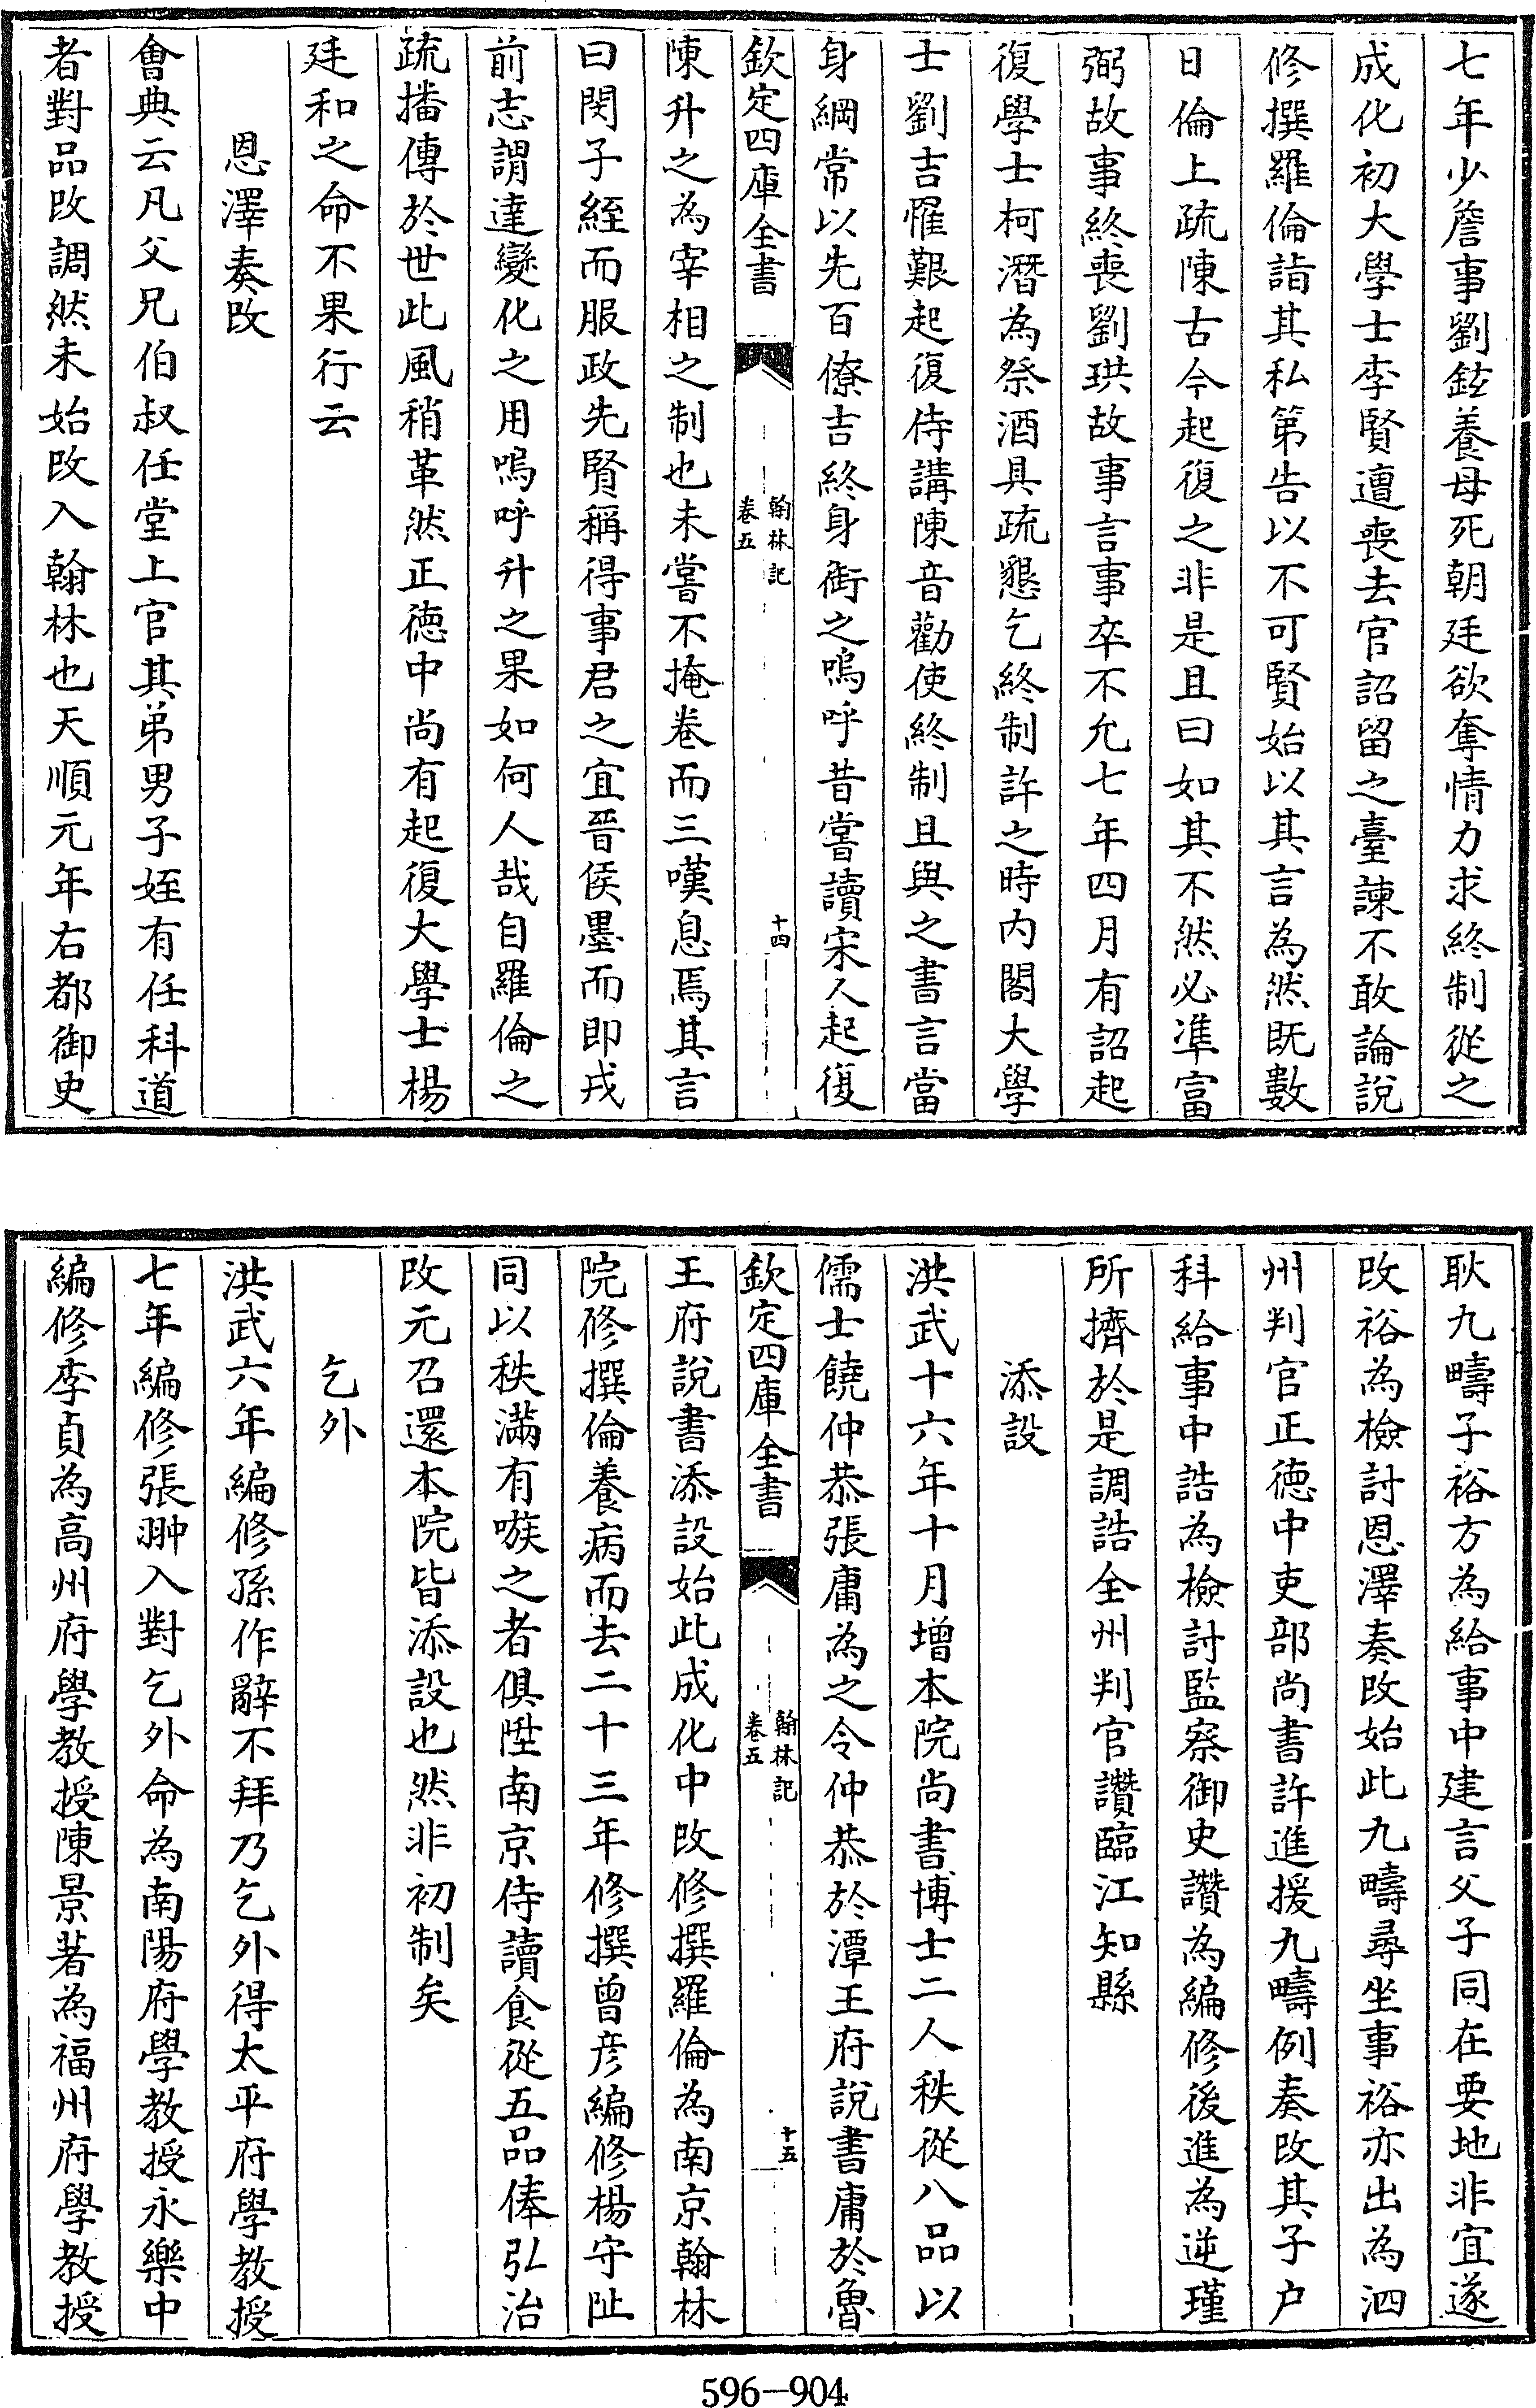 七年少詹事劉鉉養母死朝廷欲奪情力求終制從之
成化初大學士李賢遭喪去官詔留之臺諫不敢論說
修撰羅倫詣其私第告以不可賢始以其言為然既數
日倫上疏陳古今起復之非是且曰如其不然必準富
弼故事終喪劉珙故事言事卒不允七年四月有詔起
復學士柯潛為祭酒具疏懇乞終制許之時内閣大學
士劉吉罹艱起復侍講陳音勸使終制且與之書言當
身綱常以先百僚吉終身銜之嗚呼昔嘗讀宋人起復
欽定四庫全書
翰林記
卷五
十四
陳升之為宰相之制也未嘗不掩卷而三嘆息焉其言
曰閔子絰而服政先賢稱得事君之宜晉侯墨而即戎
前志謂達變化之用嗚呼升之果如何人哉自羅倫之
疏播傳於世此風稍革然正徳中尚有起復大學士楊
廷和之命不果行云
恩澤奏改
會典云凡父兄伯叔任堂上官其弟男子姪有任科道
者對品改調然未始改入翰林也天順元年右都御史
耿九疇子裕方為給事中建言父子同在要地非宜遂
改裕為檢討恩澤奏改始此九疇尋坐事裕亦出為泗
州判官正徳中吏部尚書許進援九疇例奏改其子户
科給事中誥為檢討監察御史讚為編修後進為逆瑾
所擠於是調誥全州判官讚臨江知縣
添設
洪武十六年十月增本院尚書博士二人秩從八品以
儒士饒仲恭張庸為之令仲恭於潭王府說書庸於魯
欽定四庫全書
翰林記
卷五
十五
王府說書添設始此成化中改修撰羅倫為南京翰林
院修撰倫養病而去二十三年修撰曾彦編修楊守阯
同以秩滿有嗾之者俱陞南京侍讀食從五品俸弘治
改元召還本院皆添設也然非初制矣
乞外
洪武六年編修孫作辭不拜乃乞外得太平府學教授
七年編修張翀入對乞外命為南陽府學教授永樂中
編修李貞為高州府學教授陳景著為福州府學教授
596-904